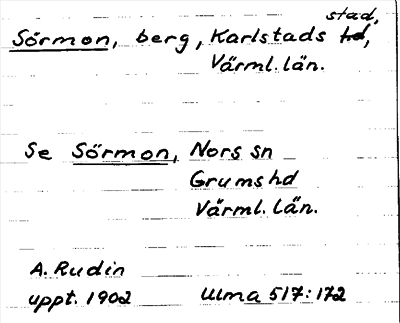 stad,
Sörmon, berg, Karlstads hd,
Värml. län.
Se Sörmon, Nors sn
Grums hd
Värml. län.
A. Rudin
uppt. 1902 Ulma 517:172